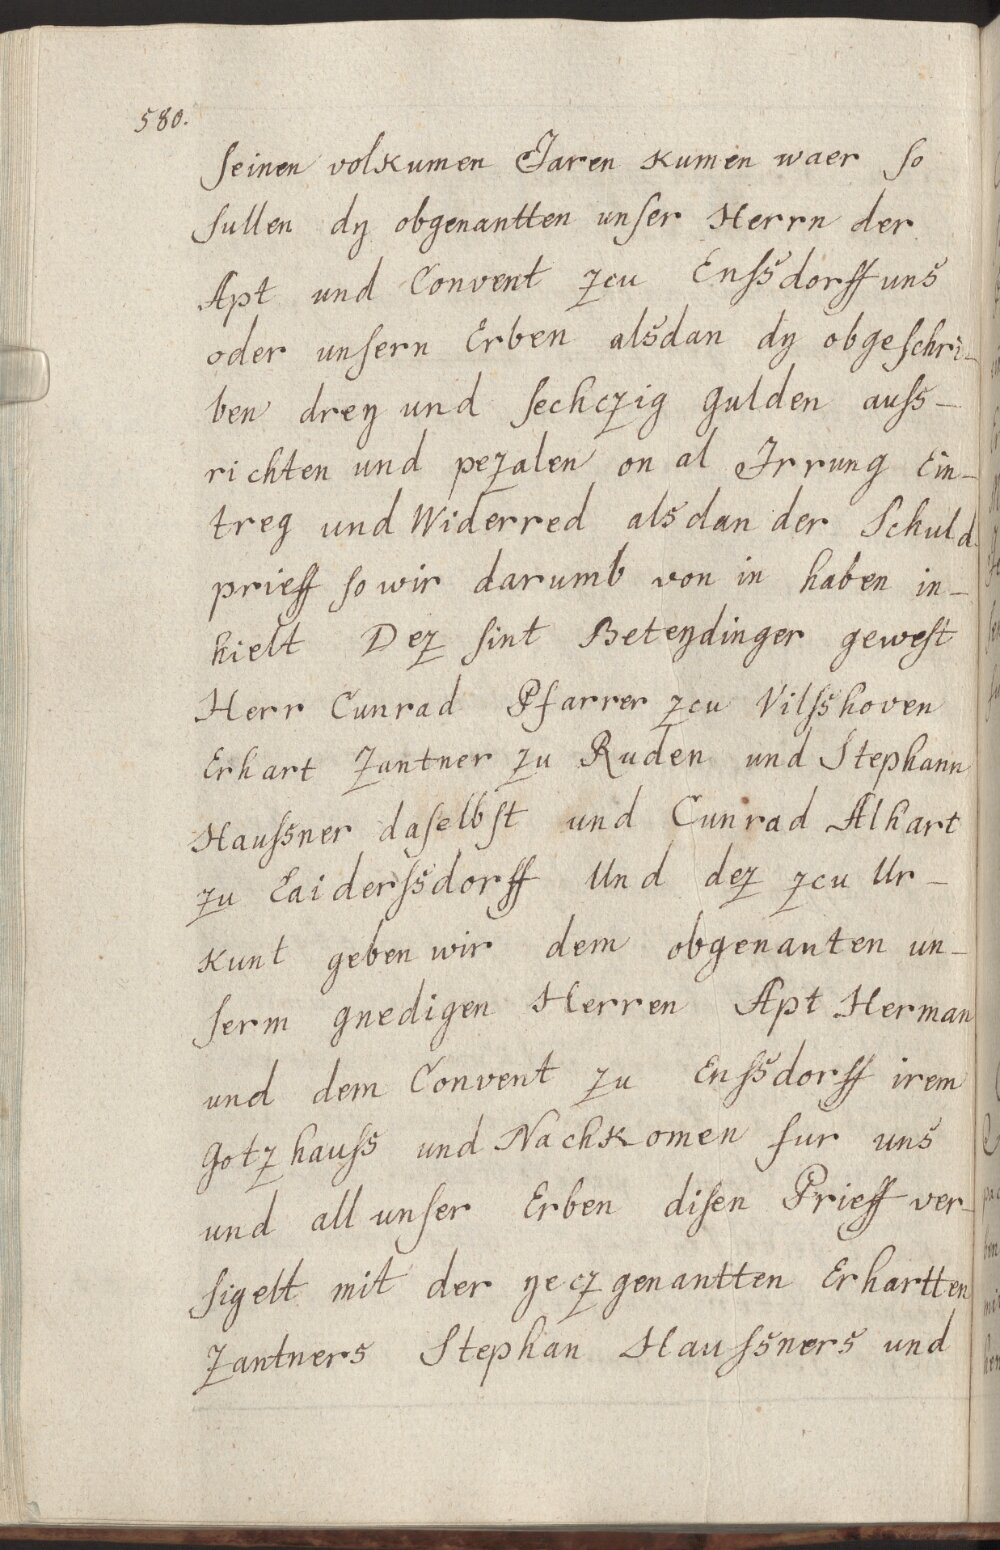 580.
seinen volkumen Jaren kumen waer so
sullen dy obgenantten unser Herrn der
Apt und Convent zcu Enssdorff uns
oder unsern Erben alsdan dy obgeschri-
ben drey und sechczig Gulden auss-
richten und pezalen on al Irrung Ein-
treg und Widerred als dan der Schuld
prieff so wir darumb von in haben in-
hielt Dez sint Beteydinger gewest
Herr Cunrad Pfarrer zcu Vilsshoven
Erhart Zantner zu Ruden und Stephann
Haussner daselbst und Cunrad Alhart
zu Eaiderssdorff Und dez zcu Ur-
kunt geben wir dem obgenanten un-
serm gnedigen Herren Apt Herman
und dem Convent zu Enssdorff irem
Gotzhauss und Nachkomen fur uns
und all unser Erben disen Prieff ver-
sigelt mit der yecz genantten Erhartten
Zantners Stephan Haussners und